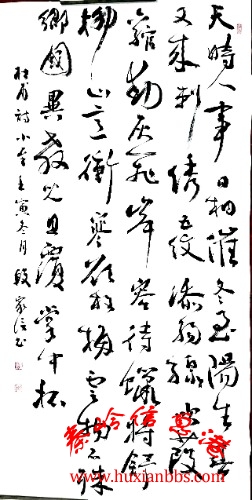 天時人事日相催冬至陽生春
又来刺绣五纹添弱線吹葭
六管動灰飛岸容待臘將舒
柳山意衝寒欲放梅雲物不殊
鄉國異教兒且覆掌中杯
杜甫詩小至壬寅冬月段家
www.huxianbbs.com